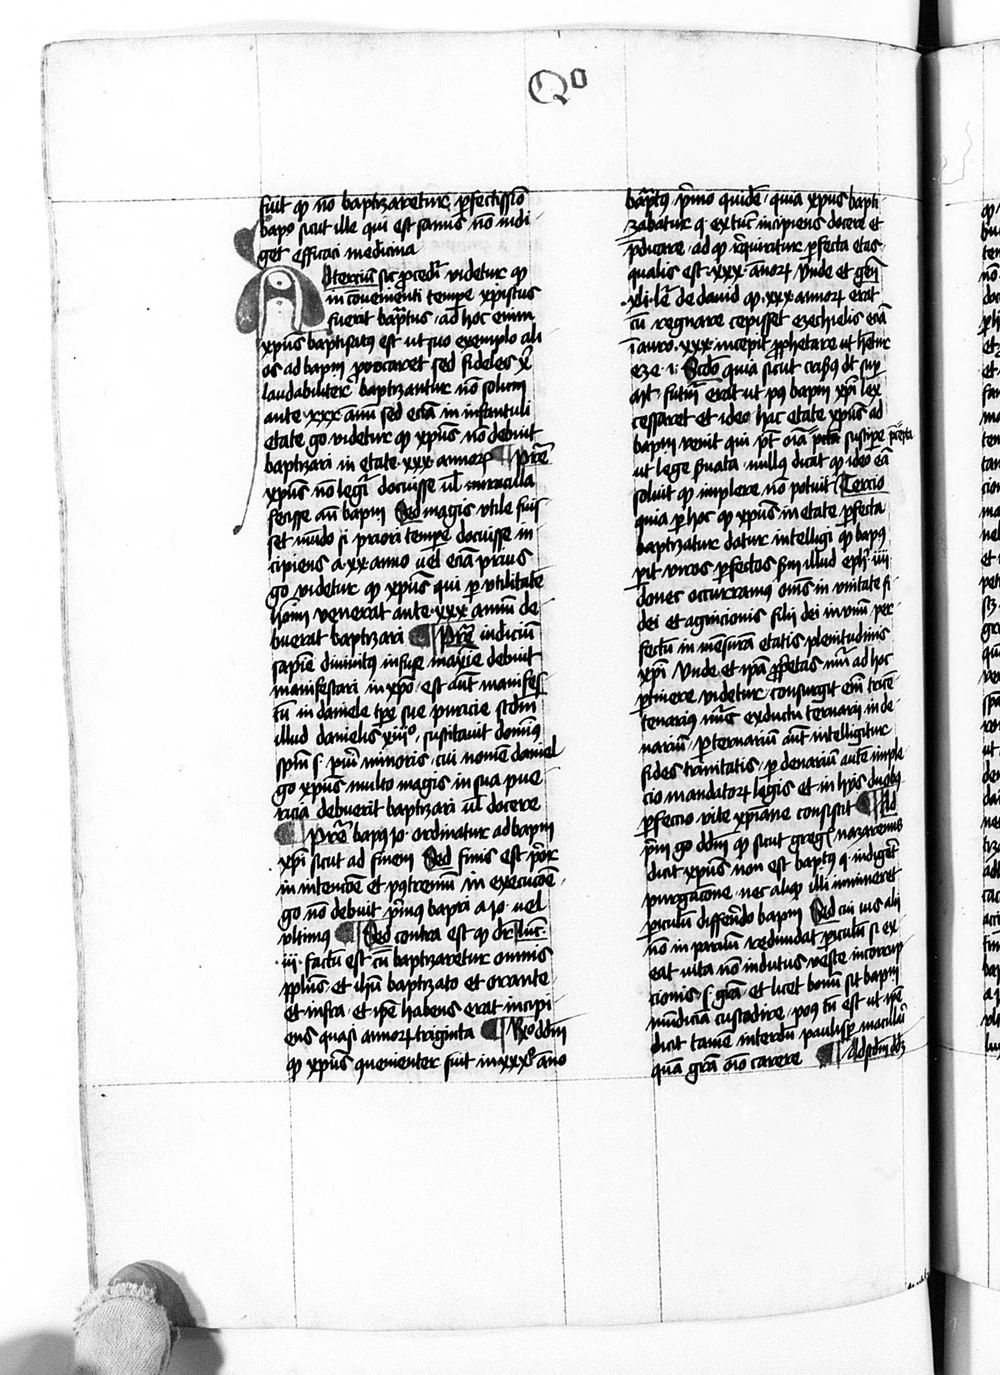 Qo
fuit qp no baptizaretur perfectissio
bapo sicut ille qui est sanus no indi
get efficaci medicina
Ad terciu sic procedit videtur qp
in conuenienti tempe xpistus
fuerat baptus ad hoc enim
xpus baptisatus est ut suo exemplo ali
os ad bapm prouocaret sed fideles
laudabiliter baptizantur no solum
ante xxx annu sed ecia in infantuli
etate go videtur qp xpus no debuit
baptizari in etate xxx annorz Pre
xpus no legit docuisse ul miracula
fecisse an bapm Sed magis utile fuis
set mudo si priori tempe docuisse in
cipiens a xx anno uel ecia prius
go videtur qp xpus qui p utilitate
homi venerat ante xxx annu de
buerat baptizari Pre indiciu
sapie diuinitus infuse maxie debuit
manifestari in xpo est aut manifes
tu in daniele tpe sue puricie scdm
illud danielis xiiio suscitauit dominus
spm s puri minoris cui nomen daniel
go xpus multo magis in sua pue
ricia debuerit baptizari ul docere
Pre bapus io ordinatur ad bapm
xpi sicut ad finem Sed finis est prior
in intencoe et postremu in execucoe
go no debuit primus bapri a io uel
ultimus Sed contra est qp dr luc
iii factu est cu baptizaretur omnis
pplus et ihu baptizato et orante
et infra et ipe habens erat incipi
ens quasi annorz triginta Rdo ddm
qp xpus quenienter fuit in xxxo ano
baptus primo quide quia xpus bapti
zabatur q extuc incipiens docere et
predicare ad qp requiritur perfecta etas
qualis est xxx annorz Unde et gen
xli le de dauid qp xxx annorz erat
cu regnare cepisset ezechielis ecia
i anro xxx incepit prophetare ut hetur
eze i Scdo quia sicut crisus dt sup
mt futuru erat ut pus bapm xpi lex
cessaret et ideo hac etate xpus ad
bapm venit qui pt oia pcta suscipe
ut lege seruata nullus dicat qp ideo ea
soluit qp implere no potuit Tercio
quia p hoc qp xpus in etate perfecta
baptizatur datur intelligi qp bapus
parit viros perfectos scdm illud eph iiii
donec occurramus omes in unitate fi
dei et agnicionis filii dei in viru per
fectu in mesura etatis plenitudinis
xpi Unde et ipa proprietas nuri ad hoc
pertinere videtur consurgit eni trice
tenarius nurus ex ductu ternarii in de
narium per ternarium aut intelligitur
fides trinitatis per denarium aute imple
cio mandatorz legis et in hiis duobus
perfectio vite xpiane consistit Ad
prim go ddm qp sicut greg nazarenus
dicit xpus non est baptus q indiget
purgacone nec aliqp illi immineret
periculu differendo bapm Sed cui uis alii
no in paruu redundat periculu si ex
eat uita no indutus veste incorrup
cionis s gra et licet bonu sit bapm
mudicia custodire pocius tn est ut ipe
dicit tame interdu paulisper maculari
qua gra oio carere Ad scdm ddm